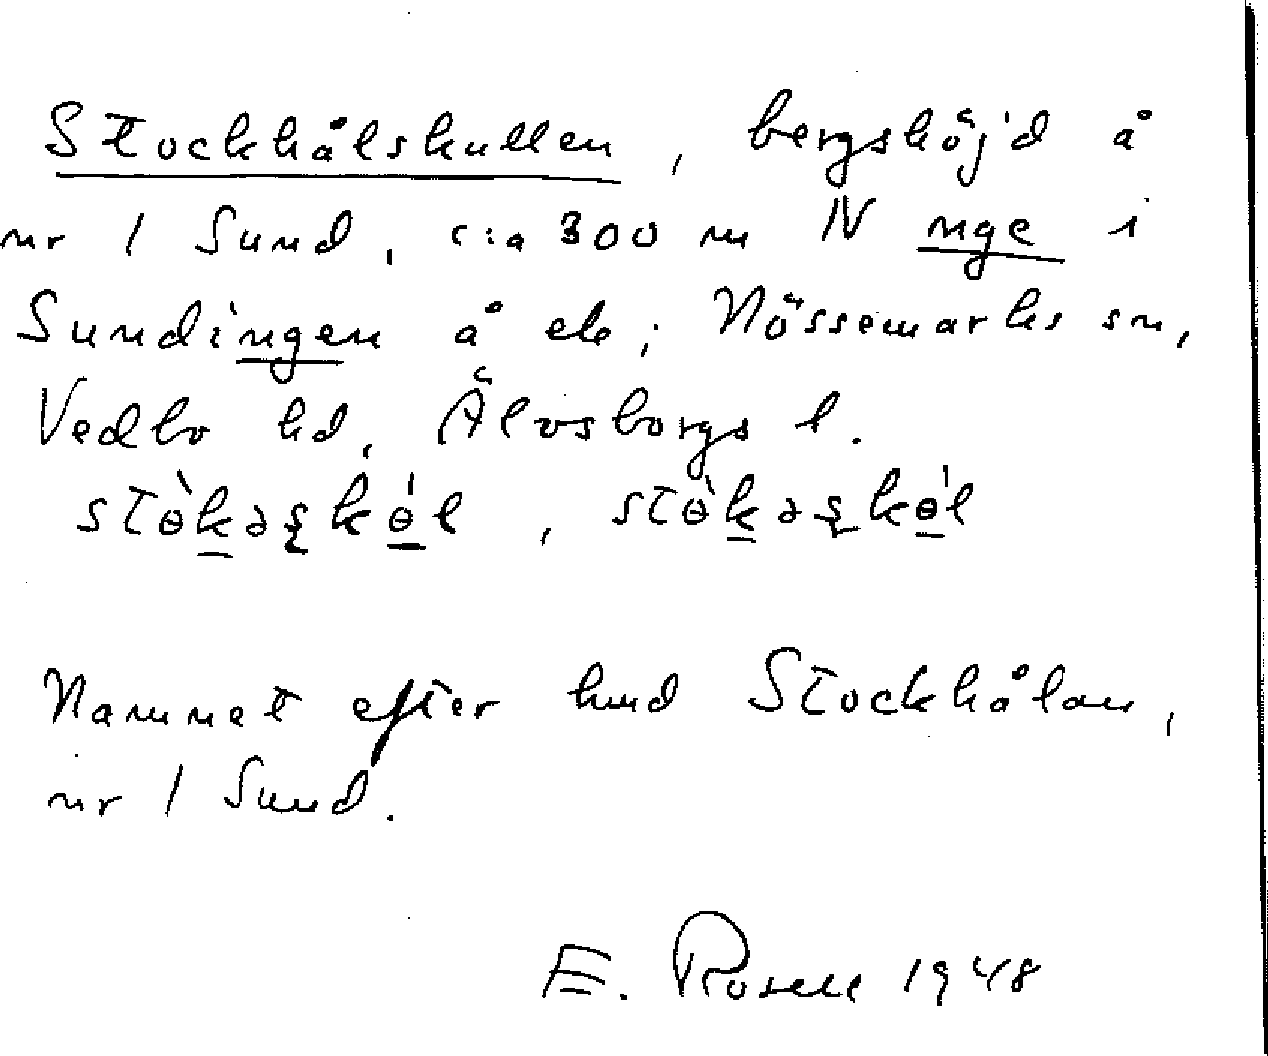 Stockhålskullen, bergshöjd å
nr 1 Sund, cia 300 m N nge i
Sundingen å ek; Nössemarks sn,
Vedbo hd, Älvsborgs l.
stɵ̀kəʂkɵ́l, stɵ̀kəʂkɵ̀l
Namnet efter hmd Stockhålan,
nr 1 Sund.
E. Rosell 1948